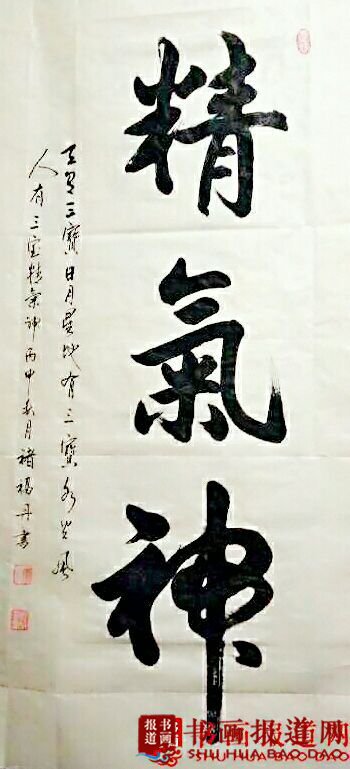 精氣神
天有三寶日月星地有三寶水火風
人有三宝精氣神丙申春月褚福丹書
书画报道
书画报道网
SHU HUA BAO DAO